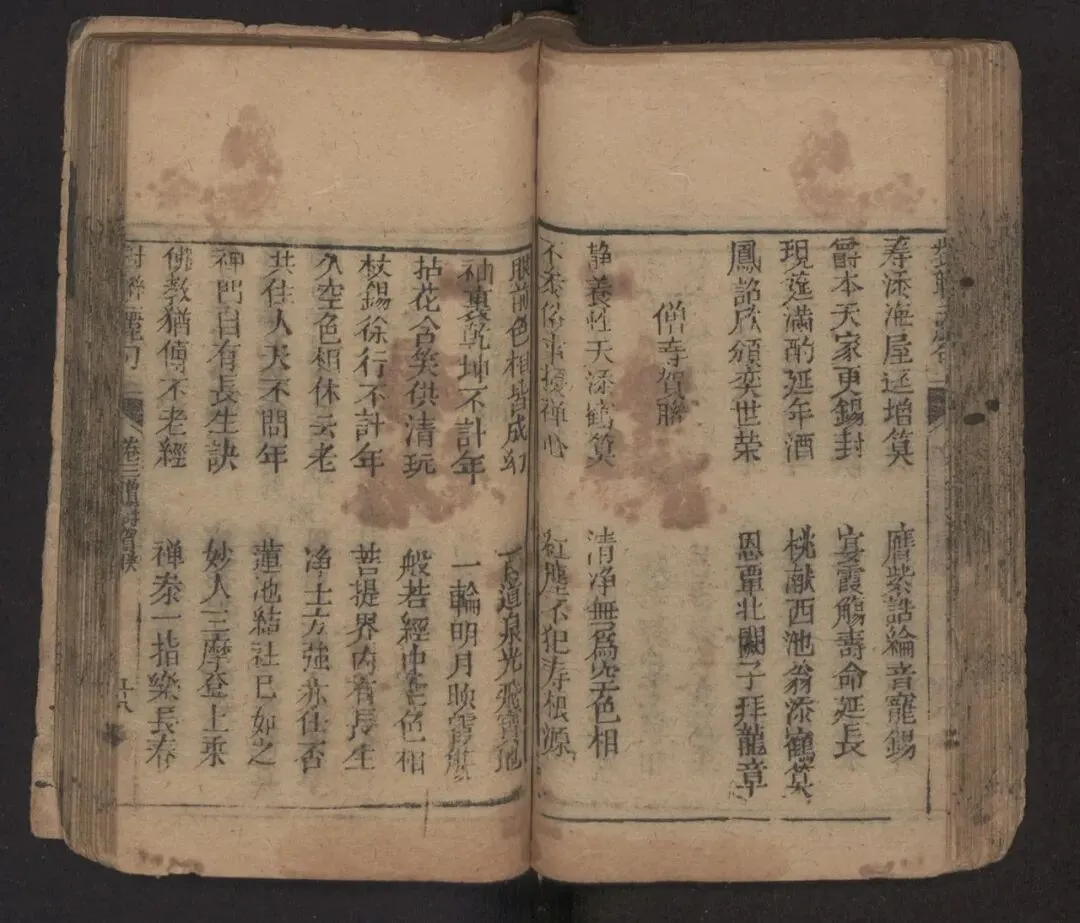 寿添海屋逐增筭　膺紫誥綸音寵錫
爵本天家更錫封　宴霞觴壽命延長
現筵满酌延年酒　桃献西池翁添寉筭
鳳詔欣頒奕世荣　恩覃北闕子拜龍章
僧寺賀聯
静養性天添鶴筭　清净無為空色相
俗事擾禅心　紅塵不犯寿根源
眼前色相皆成幻　道泉光飛寳地
袖裏乾坤不計年　一輪明月映
拈花含笑供清玩　般若經中空色相
杖錫徐行不計年　菩提界内有長生
久空色相休云老　净土方強亦仕否
共住人天不問年　蓮池結社已如之
禅門自有長生訣　妙人三摩登上乘
佛教猶傳不老經　禅泰一指樂長春
對聯麗句　卷三　僧寺賀聯